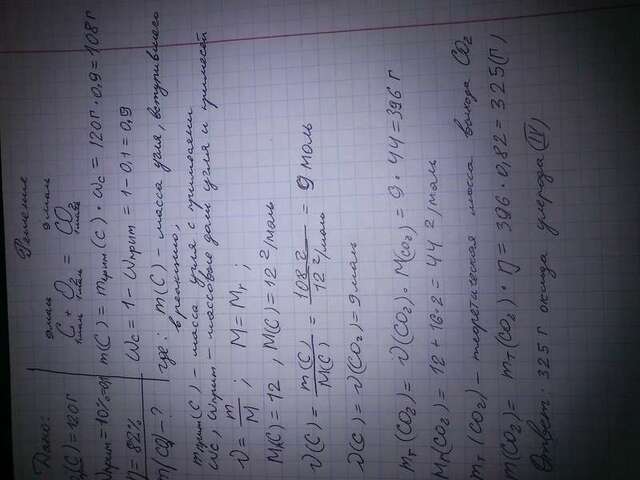 Решение
Дано:
(C) = 120г
Wприм = 10% = 0,1
η = 82%
m(CO) - ?
9 моль 9 моль
C + O₂ = CO₂
1 моль 1 моль 1 моль
m(C) = mприм(C) · ωc = 120г · 0,9 = 108г
ωc = 1 - ωприм = 1 - 0,1 = 0,9
где: m(C) - масса угля, вступившего
в реакцию,
mприм(C) - масса угля с примесями
ωc, ωприм - массовые доли угля и примесей
ν = m/M ; M = Mr ;
Mr(C) = 12 , M(C) = 12 г/моль
ν(C) = m(C)/M(C) = 108 г/12 г/моль = 9 моль
ν(C) = ν(CO₂) = 9 моль
mт(CO₂) = ν(CO₂) · M(CO₂) = 9 · 44 = 396 г
Mr(CO₂) = 12 + 16·2 = 44 г/моль
mт(CO₂) - теоретическая масса выхода CO₂
m(CO₂) = mт(CO₂) · η = 396 · 0,82 = 325(г)
Ответ: 325 г оксида углерода (IV)